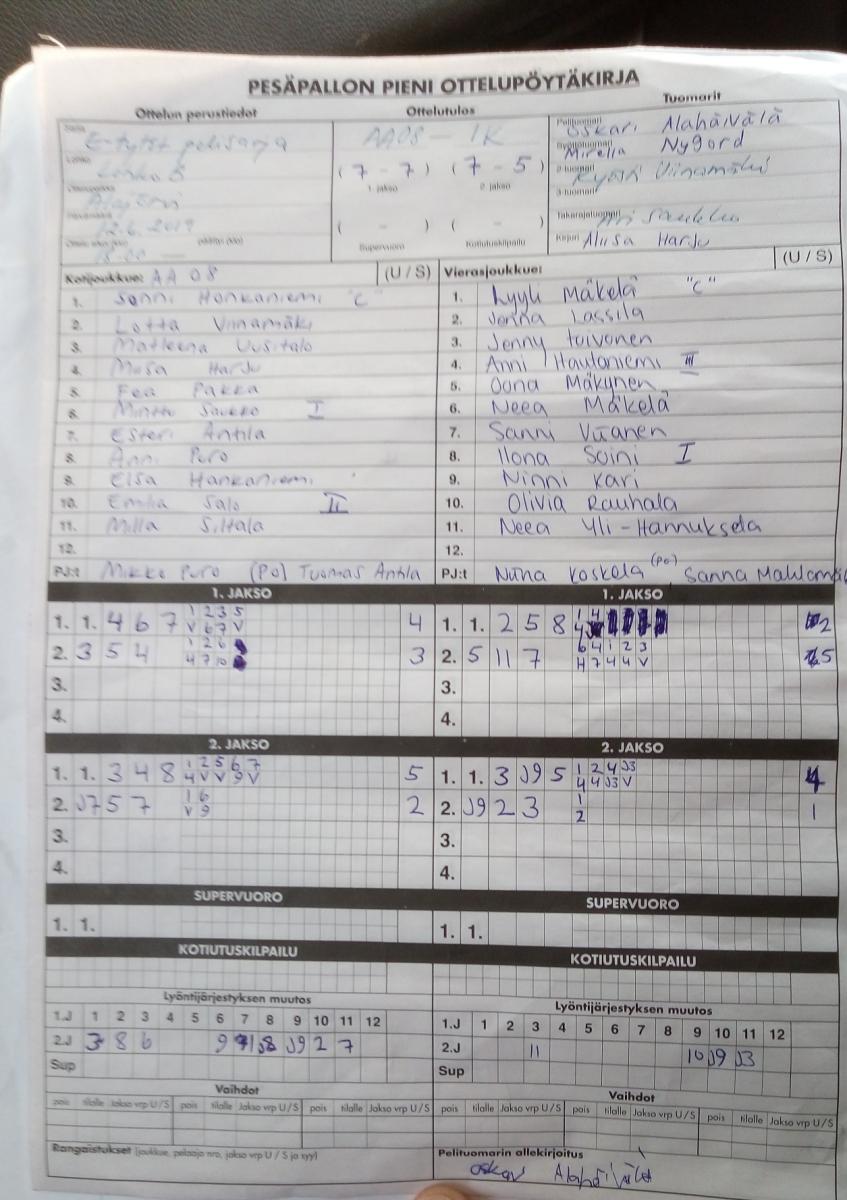 PESÄPALLON PIENI OTTELUPÖYTÄKIRJA
Ottelun perustiedot
Ottelutulos
Tuomarit
E-tytöt
Lohko
12.6.2019
18.00
AA08 - IK
(7 - 7) (7 - 5)
1. jakso 2. jakso
( - ) ( - )
Supervuoro Kotiutuskilpailu
Oskari Alahäivälä
Mirella Nygord
Viinamäki
2-tuomari
3-tuomari
Takarajatuomari
Kirjuri Aliisa Harju
Kotijoukkue: AA 08 (U / S)
1. Sonni Honkaniemi "C"
2. Lotta Viinamäki
3. Matleena Uusitalo
4. Miisa Harju
5. Eea Pakka
6. Minttu Saukko I
7. Esteri Antila
8. Anni Puro
9. Elsa Hankaniemi
10. Emilia Salo II
11. Milla Siltala
12.
PJ:t Mikko Puro (Po) Tuomas Antila
Vierasjoukkue: (U / S)
1. Lyyli Mäkelä "C"
2. Jenna Lassila
3. Jenny Toivonen
4. Anni Hautoniemi III
5. Oona Mäkynen
6. Neea Mäkelä
7. Sanni
8. Ilona Soini I
9. Ninni Kari
10. Olivia Rauhala
11. Neea Yli-Hannuksela
12.
PJ:t Niina Koskela (Po) Sanna
1. JAKSO
1. 1. 4 6 7 1 2 3 5 4
V 6 7 V
2. 3 5 4 1 2 6 3
4 7 10
3.
4.
1. JAKSO
1. 1. 2 5 8 1 4 2
2. 5 11 7 6 4 1 2 3 5
H 7 4 4 V
3.
4.
2. JAKSO
1. 1. 3 4 8 1 2 5 6 7 5
4 V V 9 V
2. J7 5 7 1 6 2
V 9
3.
4.
2. JAKSO
1. 1. 3 J9 5 1 2 4 J3 4
4 4 J3 V
2. J9 2 3 1 1
2
3.
4.
SUPERVUORO
1. 1.
SUPERVUORO
1. 1.
KOTIUTUSKILPAILU
KOTIUTUSKILPAILU
Lyöntijärjestyksen muutos
1.J 1 2 3 4 5 6 7 8 9 10 11 12
2.J 3 8 6 9 J8 J9 2 7
Sup
Lyöntijärjestyksen muutos
1.J 1 2 3 4 5 6 7 8 9 10 11 12
2.J 11 10 J9 J3
Sup
Vaihdot
pois tilalle Jakso vrp U/S pois tilalle Jakso vrp U/S pois tilalle Jakso vrp U/S
Vaihdot
pois tilalle Jakso vrp U/S pois tilalle Jakso vrp U/S pois tilalle Jakso vrp U/S
Rangaistukset (joukkue, pelaaja nro, jakso vrp U / S ja syy)
Pelituomarin allekirjoitus
Oskari Alahäivälä